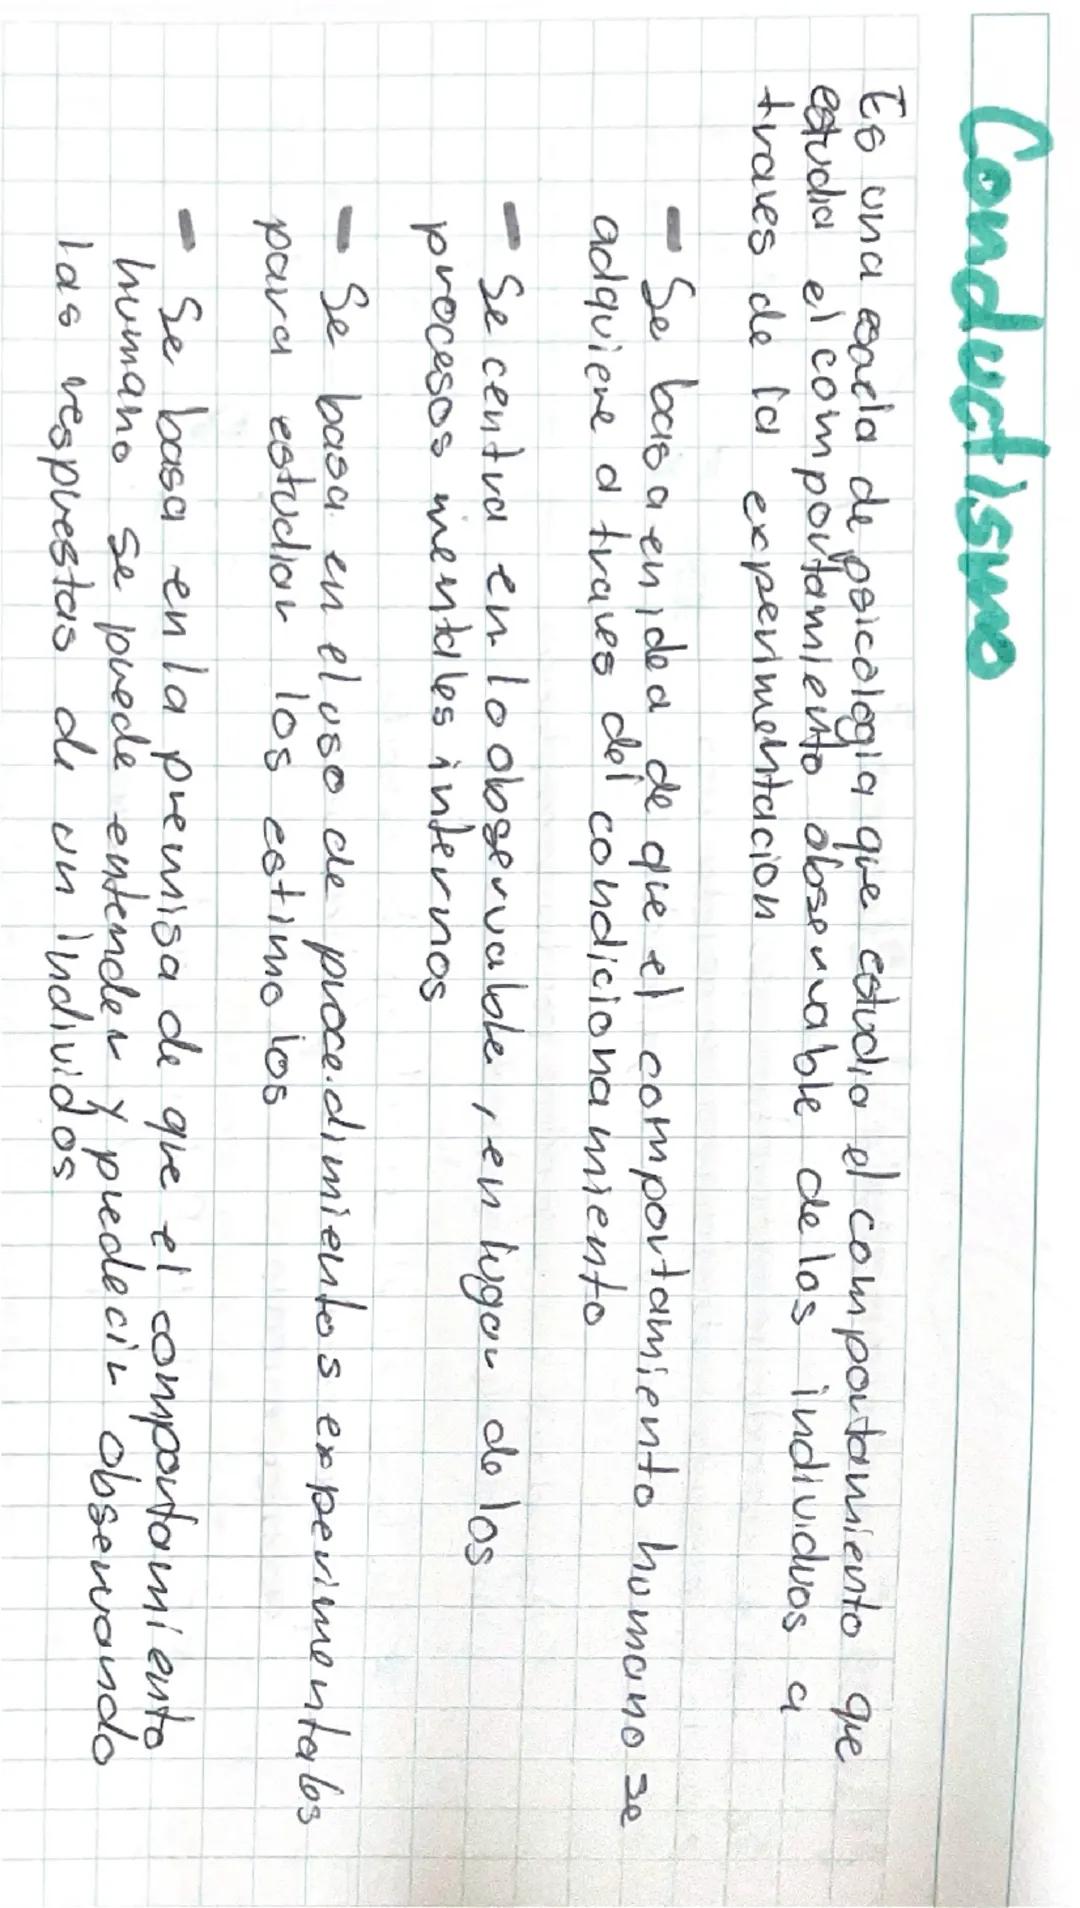 Conductismo
Es una esacla de psicologia que estudia el comportamiento que
estudia el comportamiento observable de los individuos a
traves de la experimentacion
- Se basa en idea de que el comportamiento humano se
adquiere a traves del condicionamiento
- Se centra en lo observable, en lugar de los
procesos mentales internos
- Se basa en el uso de procedimientos experimentales
para estudiar los estimolos
- Se basa en la premisa de que el comportamiento
humano se puede entender y predecir observando
las respuestas de un individos